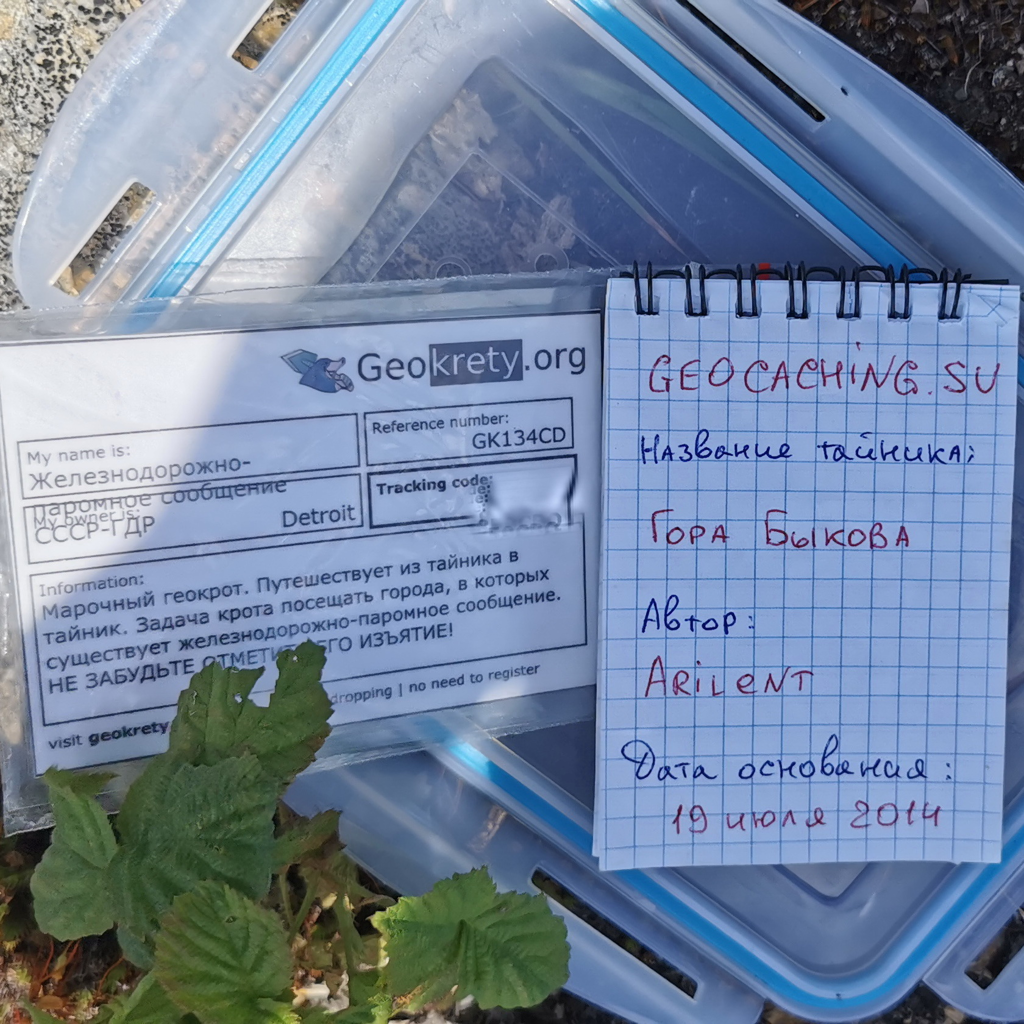 Geokrety.org
My name is:
Железнодорожно-
паромное сообщение
СССР-ГДР
Reference number:
GK134CD
My owner is:
Detroit
Tracking code:
Information:
Марочный геокрот. Путешествует из тайника в
тайник. Задача крота посещать города, в которых
существует железнодорожно-паромное сообщение.
НЕ ЗАБУДЬТЕ ИЗЪЯТИЕ!
visit geokrety dropping | no need to register
GEOCACHING.SU
Название тайника:
Гора Быкова
Автор:
ARiLeNT
Дата основания:
19 июля 2014